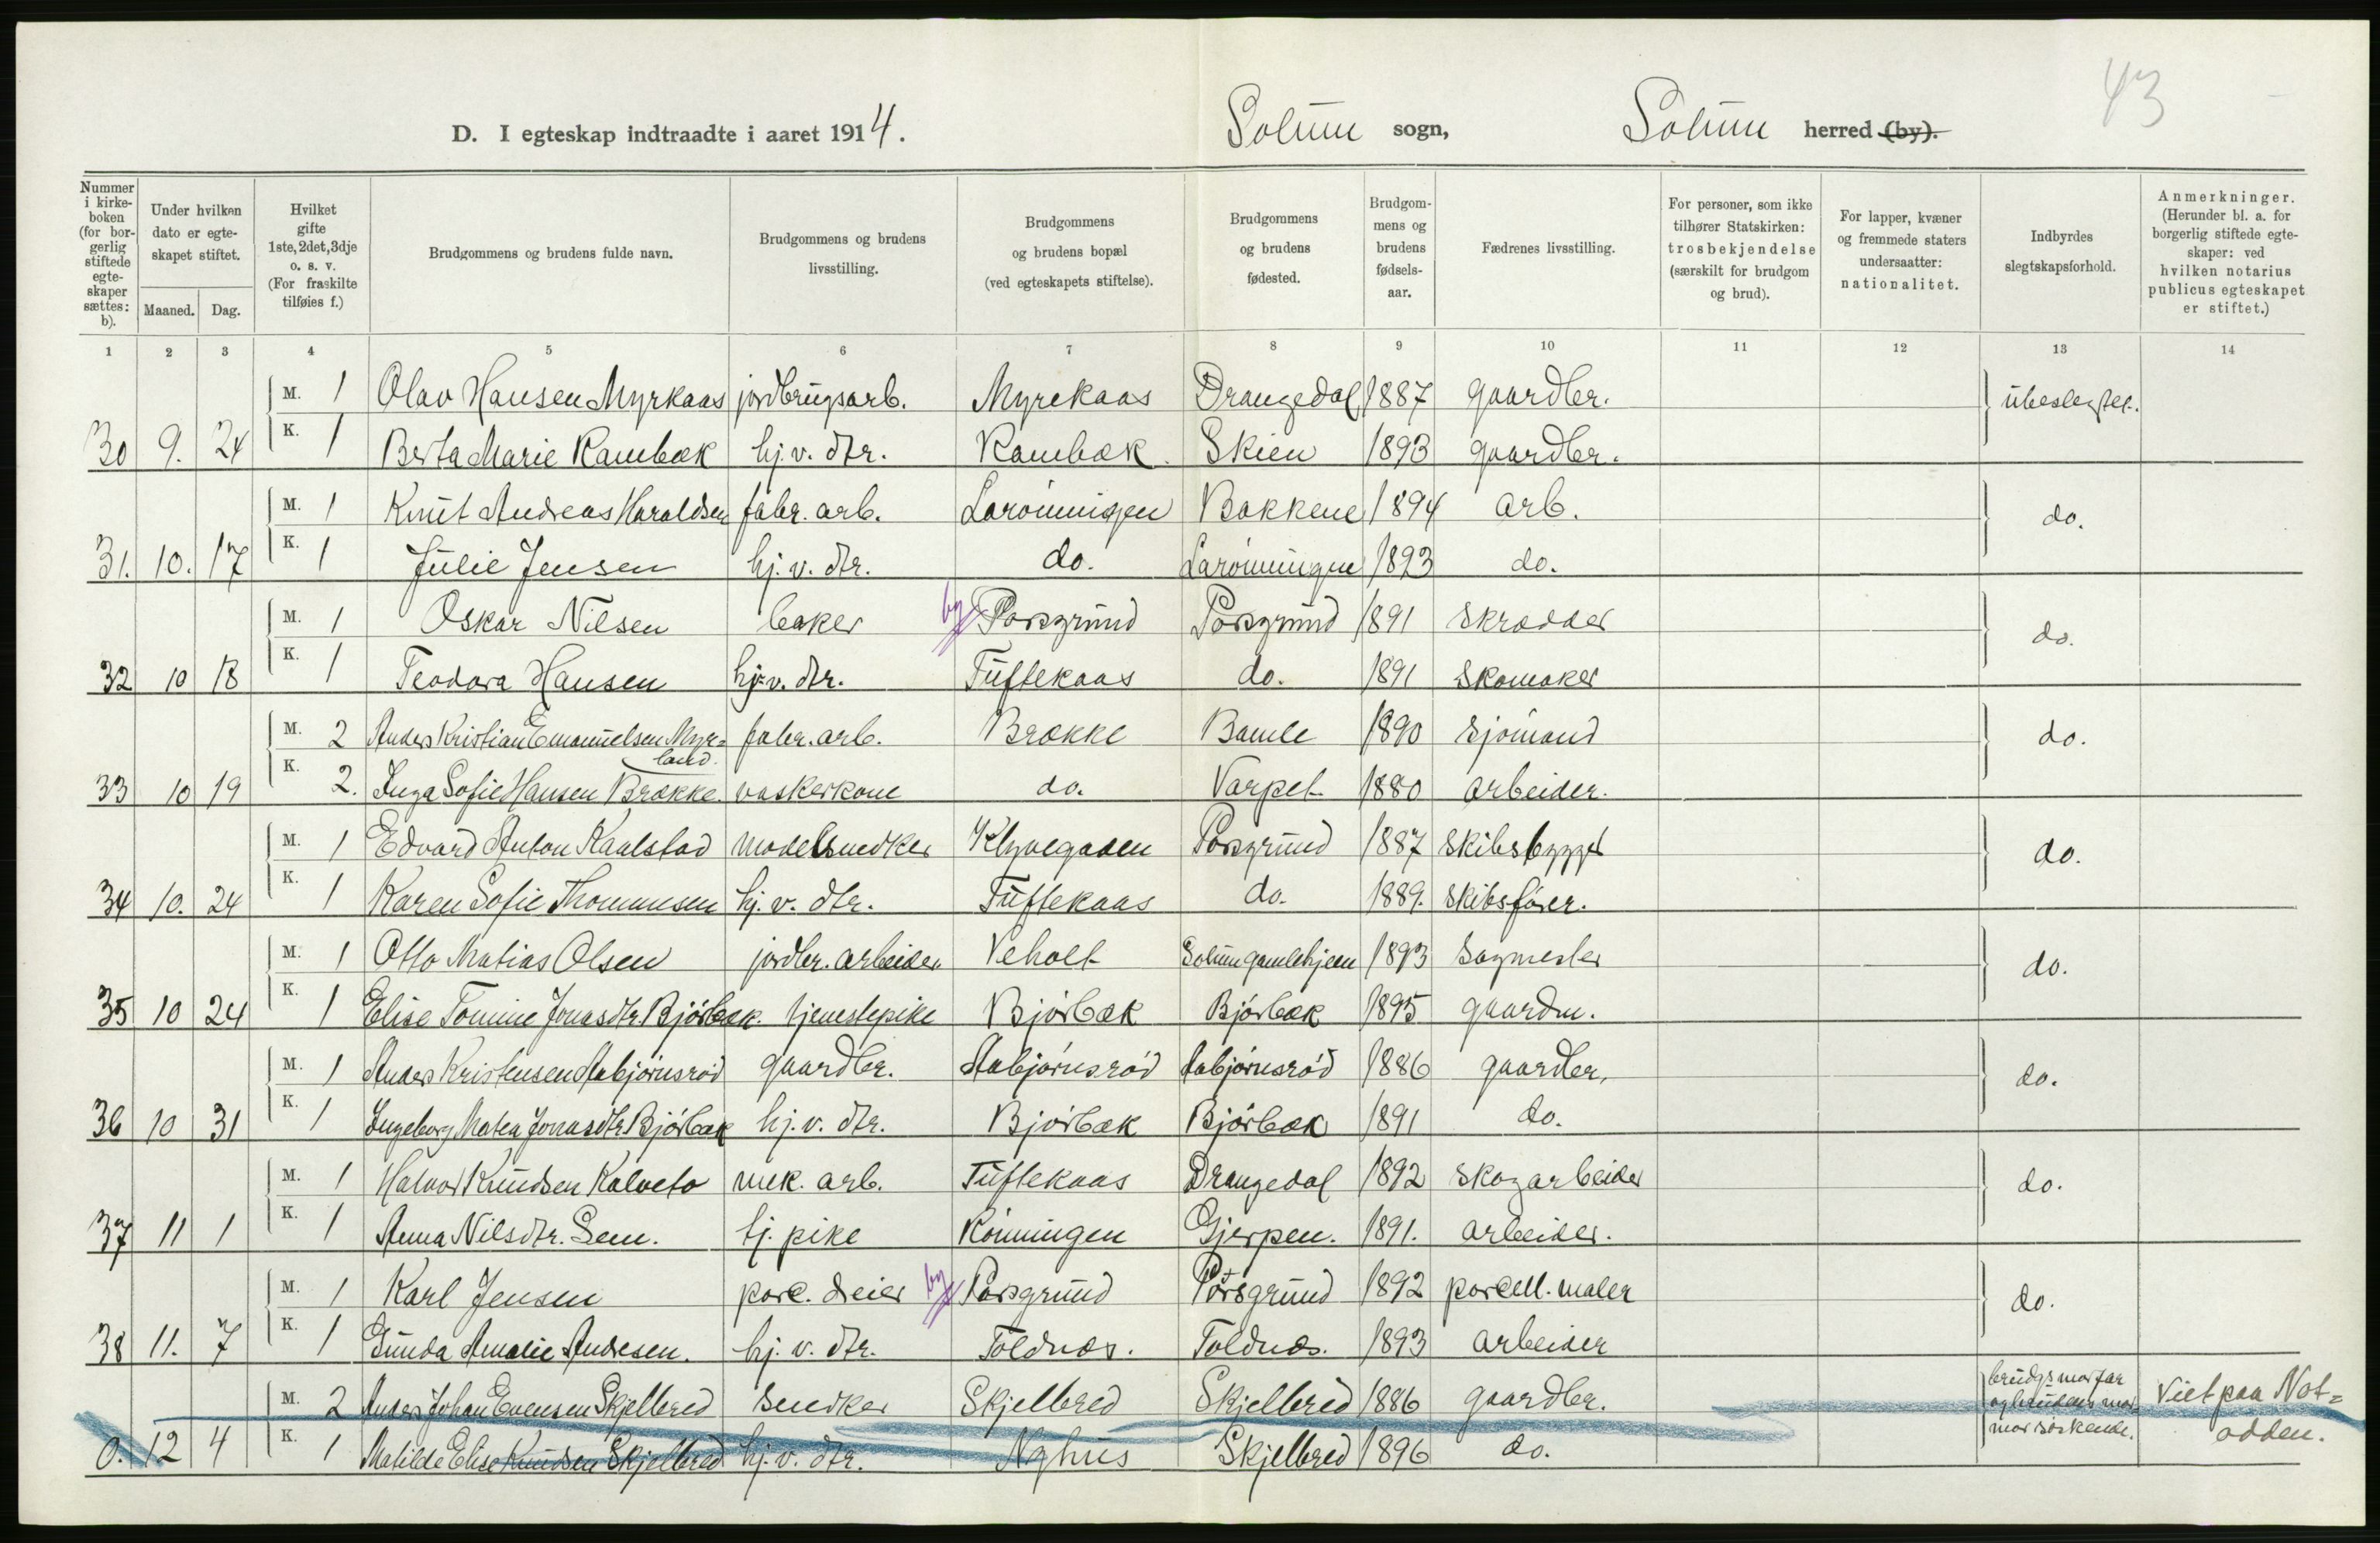 43
D. I egteskap indtraadte i aaret 1914. Solum sogn, Solum herred (by).
Nummer i kirkeboken (for borgerlig stiftede egteskaper sættes: b). Under hvilken dato er egteskapet stiftet. Maaned. Dag. Hvilket gifte 1ste, 2det, 3dje o. s. v. (For fraskilte tilføies f.) Brudgommens og brudens fulde navn. Brudgommens og brudens livsstilling. Brudgommens og brudens bopæl (ved egteskapets stiftelse). Brudgommens og brudens fødested. Brudgommens og brudens fødselsaar. Fædrenes livsstilling. For personer, som ikke tilhører Statskirken: trosbekjendelse (særskilt for brudgom og brud). For lapper, kvæner og fremmede staters undersaatter: nationalitet. Indbyrdes slegtskapsforhold. Anmerkninger. (Herunder bl. a. for borgerlig stiftede egteskaper: ved hvilken notarius publicus egteskapet er stiftet.)
1 2 3 4 5 6 7 8 9 10 11 12 13 14
M. 1 Olav Hansen Myrkaas jordbrugsarb. Myrekaas Drangedal 1887 gaardbr. ubeslegtet.
30 9. 24 K. 1 Berta Marie Kambæk hj. v. dtr. Kambæk. Skien 1893 gaardbr.
M. 1 Knut Andreas Haraldsen fabr. arb. Larönningen Bakkene 1894 arb. do.
31. 10. 17 K. 1 Julie Jensen hj. v. dtr. do. Larönningen 1893 do.
M. 1 Oskar Nilsen baker by Porsgrund Porsgrund 1891 skrædder do.
32 10 18 K. 1 Teodora Hansen hj. v. dtr. Tuftekaas do. 1891 skomaker
M. 2 Anders Kristian Emanuelsen Myr= fabr. arb. Brække Bamle 1890 sjömand do.
land.
33 10 19 K. 2. Inga Sofie Hansen Brække. vaskerkone do. Varpet 1880 arbeider.
M. 1 Edvard Anton Kaalstad modelsnedker Klyvegaden Porsgrund 1887 skibsbygger do.
34 10. 24 K. 1 Karen Sofie Thommesen hj. v. dtr. Tuftekaas do. 1889. skibsförer.
M. 1 Otto Matias Olsen jordbr. arbeider Veholt Solumgamlehjem 1893 sagmester do.
35 10 24 K. 1 Elise Tomine Jonasdtr Björbæk. tjenestepike Björbæk Björbæk 1895 gaardm.
M. 1 Anders Kristensen Aabjörnsröd gaardbr. Aabjörnsröd Aabjörnsröd 1886 gaardbr. do.
36 10 31 K. 1 Ingeborg Matea Jonasdtr Björbæk hj. v. dtr. Björbæk Björbæk 1891 do.
M. 1 Halvor Knudsen Kalveto mek. arb. Tuftekaas Drangedal 1892 skogarbeider do.
37 11 1 K. 1 Anna Nilsdtr. Sem. tj. pike Rönningen Gjerpen. 1891. arbeider.
M. 1 Karl Jensen porc. dreier by Porsgrund Porsgrund 1892 porcell. maler do.
38 11. 7 K. 1 Gunda Amalie Andresen. hj. v. dtr. Toldnæs. Toldnæs. 1893 arbeider
M. 2 Anders Johan Evensen Skjelbred snedker Skjelbred Skjelbred 1886 gaardbr. brudgs morfar og brudens mormor söskende. Viet paa Not=
0. 12 4 K. 1 Matilde Elise Knudsen Skjelbred hj. v. dtr. Nyhus Skjelbred 1896 do. odden.